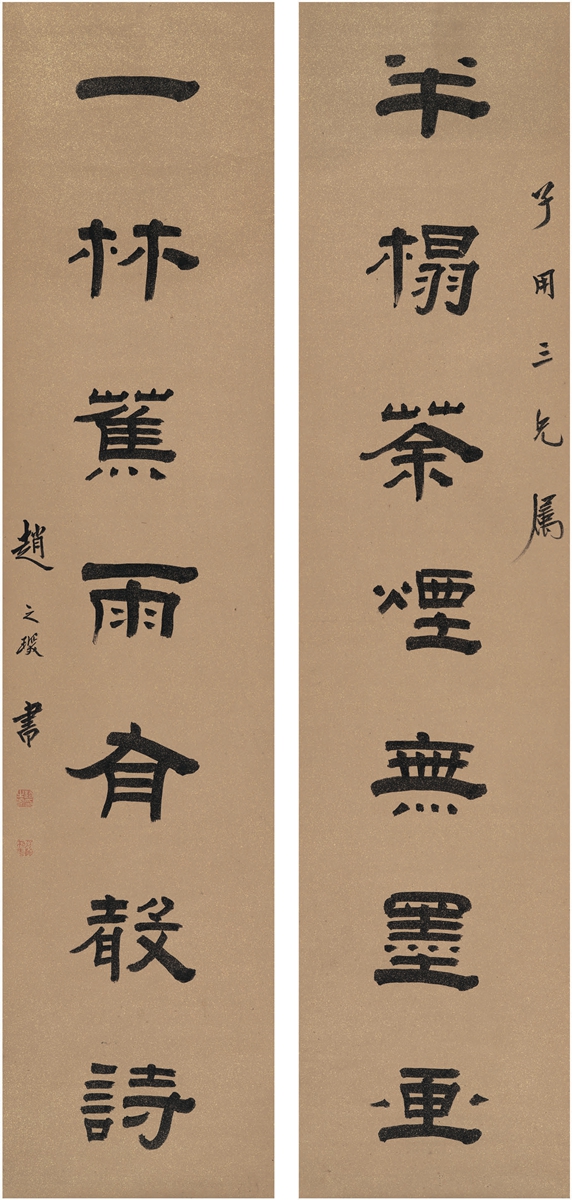 子用三兄属
半榻茶煙無墨畫
一林蕉雨有聲詩
趙之琛書